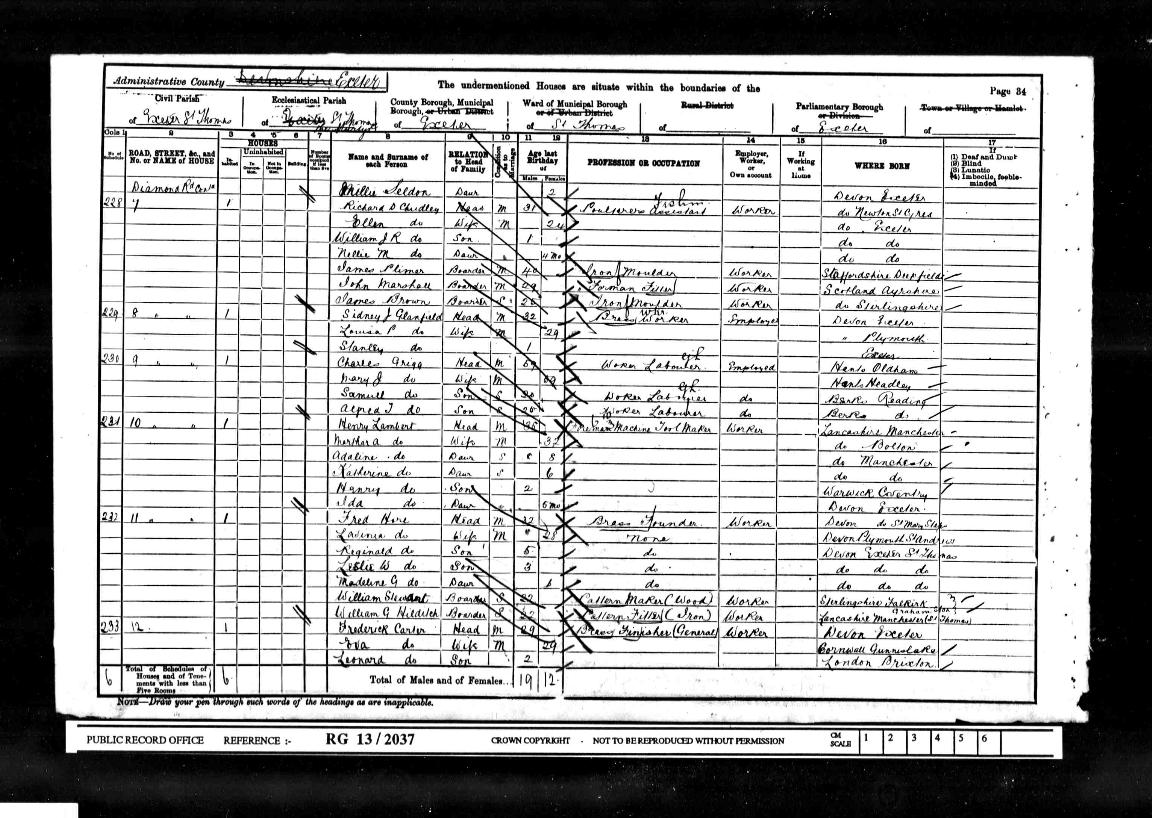 Administrative County Devonshire Exeter
The undermentioned Houses are situate within the boundaries of the
Page 34
Civil Parish of Exeter St Thomas
Ecclesiastical Parish of St Thomas
County Borough, Municipal Borough, or Urban District of Exeter
Ward of Municipal Borough or of Urban District of St Thomas
Rural District of
Parliamentary Borough or Division of Exeter
Town or Village or Hamlet of
Cols 1 2 3 4 5 6 7 8 9 10 11 12 13 14 15 16 17
No. of Schedule
ROAD, STREET, &c., and No. or NAME of HOUSE
HOUSES
Uninhabited
In Occupation. Not in Occupation. Building
Name and Surname of each Person
RELATION to Head of Family
Condition as to Marriage
Age last Birthday
Males Females
PROFESSION OR OCCUPATION
Employer, Worker, or Own account
If Working at Home
WHERE BORN
If (1) Deaf and Dumb (2) Blind (3) Lunatic (4) Imbecile, feeble-minded
Diamond Rd Millie Seldon Daur 2 Devon Exeter
228 7 1 Richard D Chudley Head M 31 Poulterers Assistant Worker do Newton St Cyres
Ellen do Wife M 24 do Exeter
William J R do Son 1 do do
Nellie M do Daur 4 mo do do
James Plimer Boarder M 40 Iron Moulder Worker Staffordshire Deepfields
John Marshall Boarder M 49 Worker Scotland Ayrshire
James Brown Boarder S 26 Iron Moulder Worker do Sterlingshire
229 8 " " 1 Sidney J Glanfield Head M 32 Brass Worker Employed Devon Exeter
Louisa P do Wife M 29 " Plymouth
Stanley do 1 Exeter
230 9 " " 1 Charles Grigg Head M 69 Worker Labourer Employed Hants Oldham
Mary J do Wife M 69 Hants Headley
Samuel do Son S 30 Worker Labourer do Berks Reading
Alfred J do Son S Worker Labourer do Berks do
231 10 " 1 Henry Lambert Head M Machine Tool Maker Worker Lancashire Manchester
Martha A do Wife M 32 do Bolton
Adaline do Daur S 8 do Manchester
Katherine do Daur S 6 do do
Henry do Son 2 Warwick Coventry
Ida do Daur 6 mo Devon Exeter
232 11 " " 1 Fred Hore Head M 32 Brass Founder Worker Devon do St Mary Steps
Lavinia do Wife M 28 None Devon Plymouth St Andrews
Reginald do Son 5 do Devon Exeter St Thomas
Leslie W do Son 3 do do do do
Madeline G do Daur 1 do do do do
William Stewart Boarder S 22 Pattern Maker (Wood) Worker Sterlingshire Falkirk
William G Boarder S 22 Pattern Fitter (Iron) Worker Lancashire Manchester (St Thomas)
233 12 1 Frederick Carter Head M 29 Brass Finisher (General) Worker Devon Exeter
Eva do Wife M 29 Cornwall Gunnislake
Leonard do Son 2 London Brixton
6 Total of Schedules of Houses and of Tenements with less than Five Rooms 6 Total of Males and of Females... 19 12
NOTE—Draw your pen through such words of the headings as are inapplicable.
PUBLIC RECORD OFFICE REFERENCE :- RG 13/2037 CROWN COPYRIGHT - NOT TO BE REPRODUCED WITHOUT PERMISSION CM SCALE 1 2 3 4 5 6